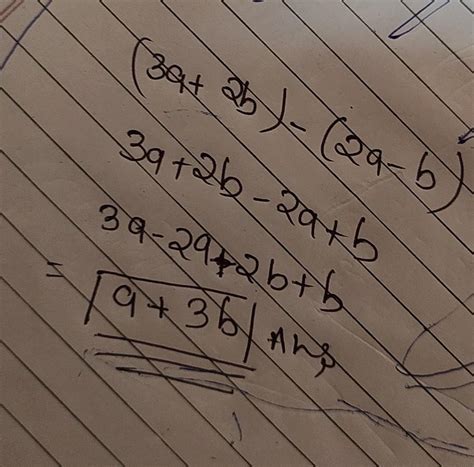 (3a + 2b) - (2a - b)
3a + 2b - 2a + b
3a - 2a + 2b + b
= a + 3b Ans